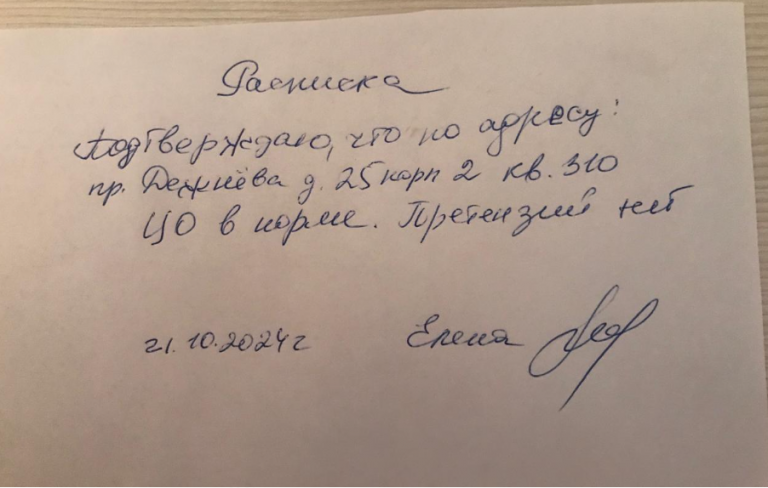 Расписка
Подтверждаю, что по адресу:
пр. Дежнёва д. 25 корп 2 кв. 310
ЦО в норме. Претензий нет
21.10.2024г Елена